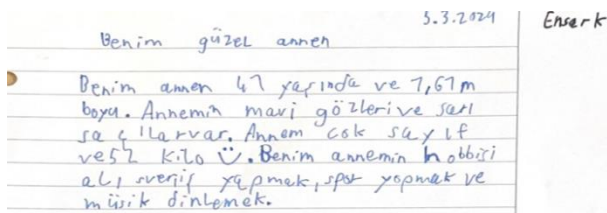 5.3.2024
Ensar k
Benim güzel annem
Benim annem 47 yaşında ve 1,67 m
boyu. Annemin mavi gözleri ve sarı
saçlılar var. Annem cok sayıf
ve 52 kilo Ü. Benim annemin hobbisi
alı sveriş yapmak, spor yapmak ve
müsik dinlemek.